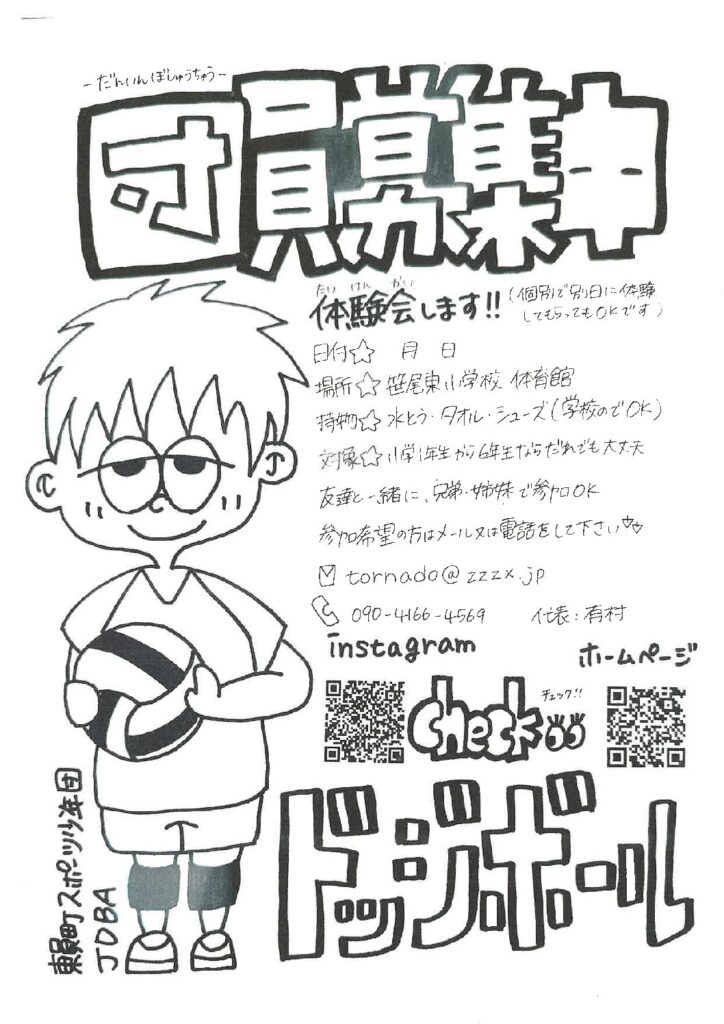 -だんいんぼしゅうちゅう-
団員募集中
たいけんかい
体験会します!!(個別で別日に体験
してもらってもOKです)
日付☆ 月 日
場所☆ 笹尾東小学校 体育館
持物☆ 水とう・タオル・シューズ(学校のでOK)
対象☆ 小学1年生から6年生ならだれでも大丈夫
友達と一緒に、兄弟・姉妹で参加OK
参加希望の方はメール又は電話をして下さい♡♡
tornado@zzzx.jp
090-4166-4569 代表:有村
instagram
ホームページ
check
チェック!!
ドッジボール
東員町スポーツ少年団
JDBA